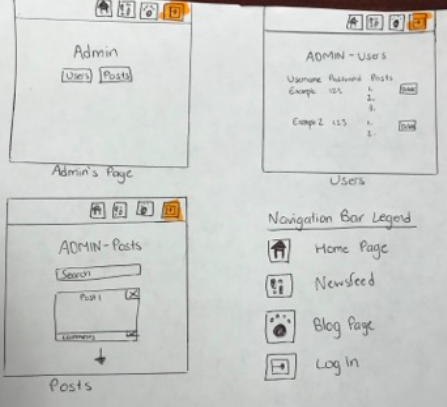 Admin
Users Posts
Admin's Page
ADMIN - Users
Username Password Posts
Example 123 1.
2.
3.
Example 2 123 1.
2.
Users
ADMIN-Posts
Search
Post 1
Comments
Posts
Navigation Bar Legend
Home Page
Newsfeed
Blog Page
Log In